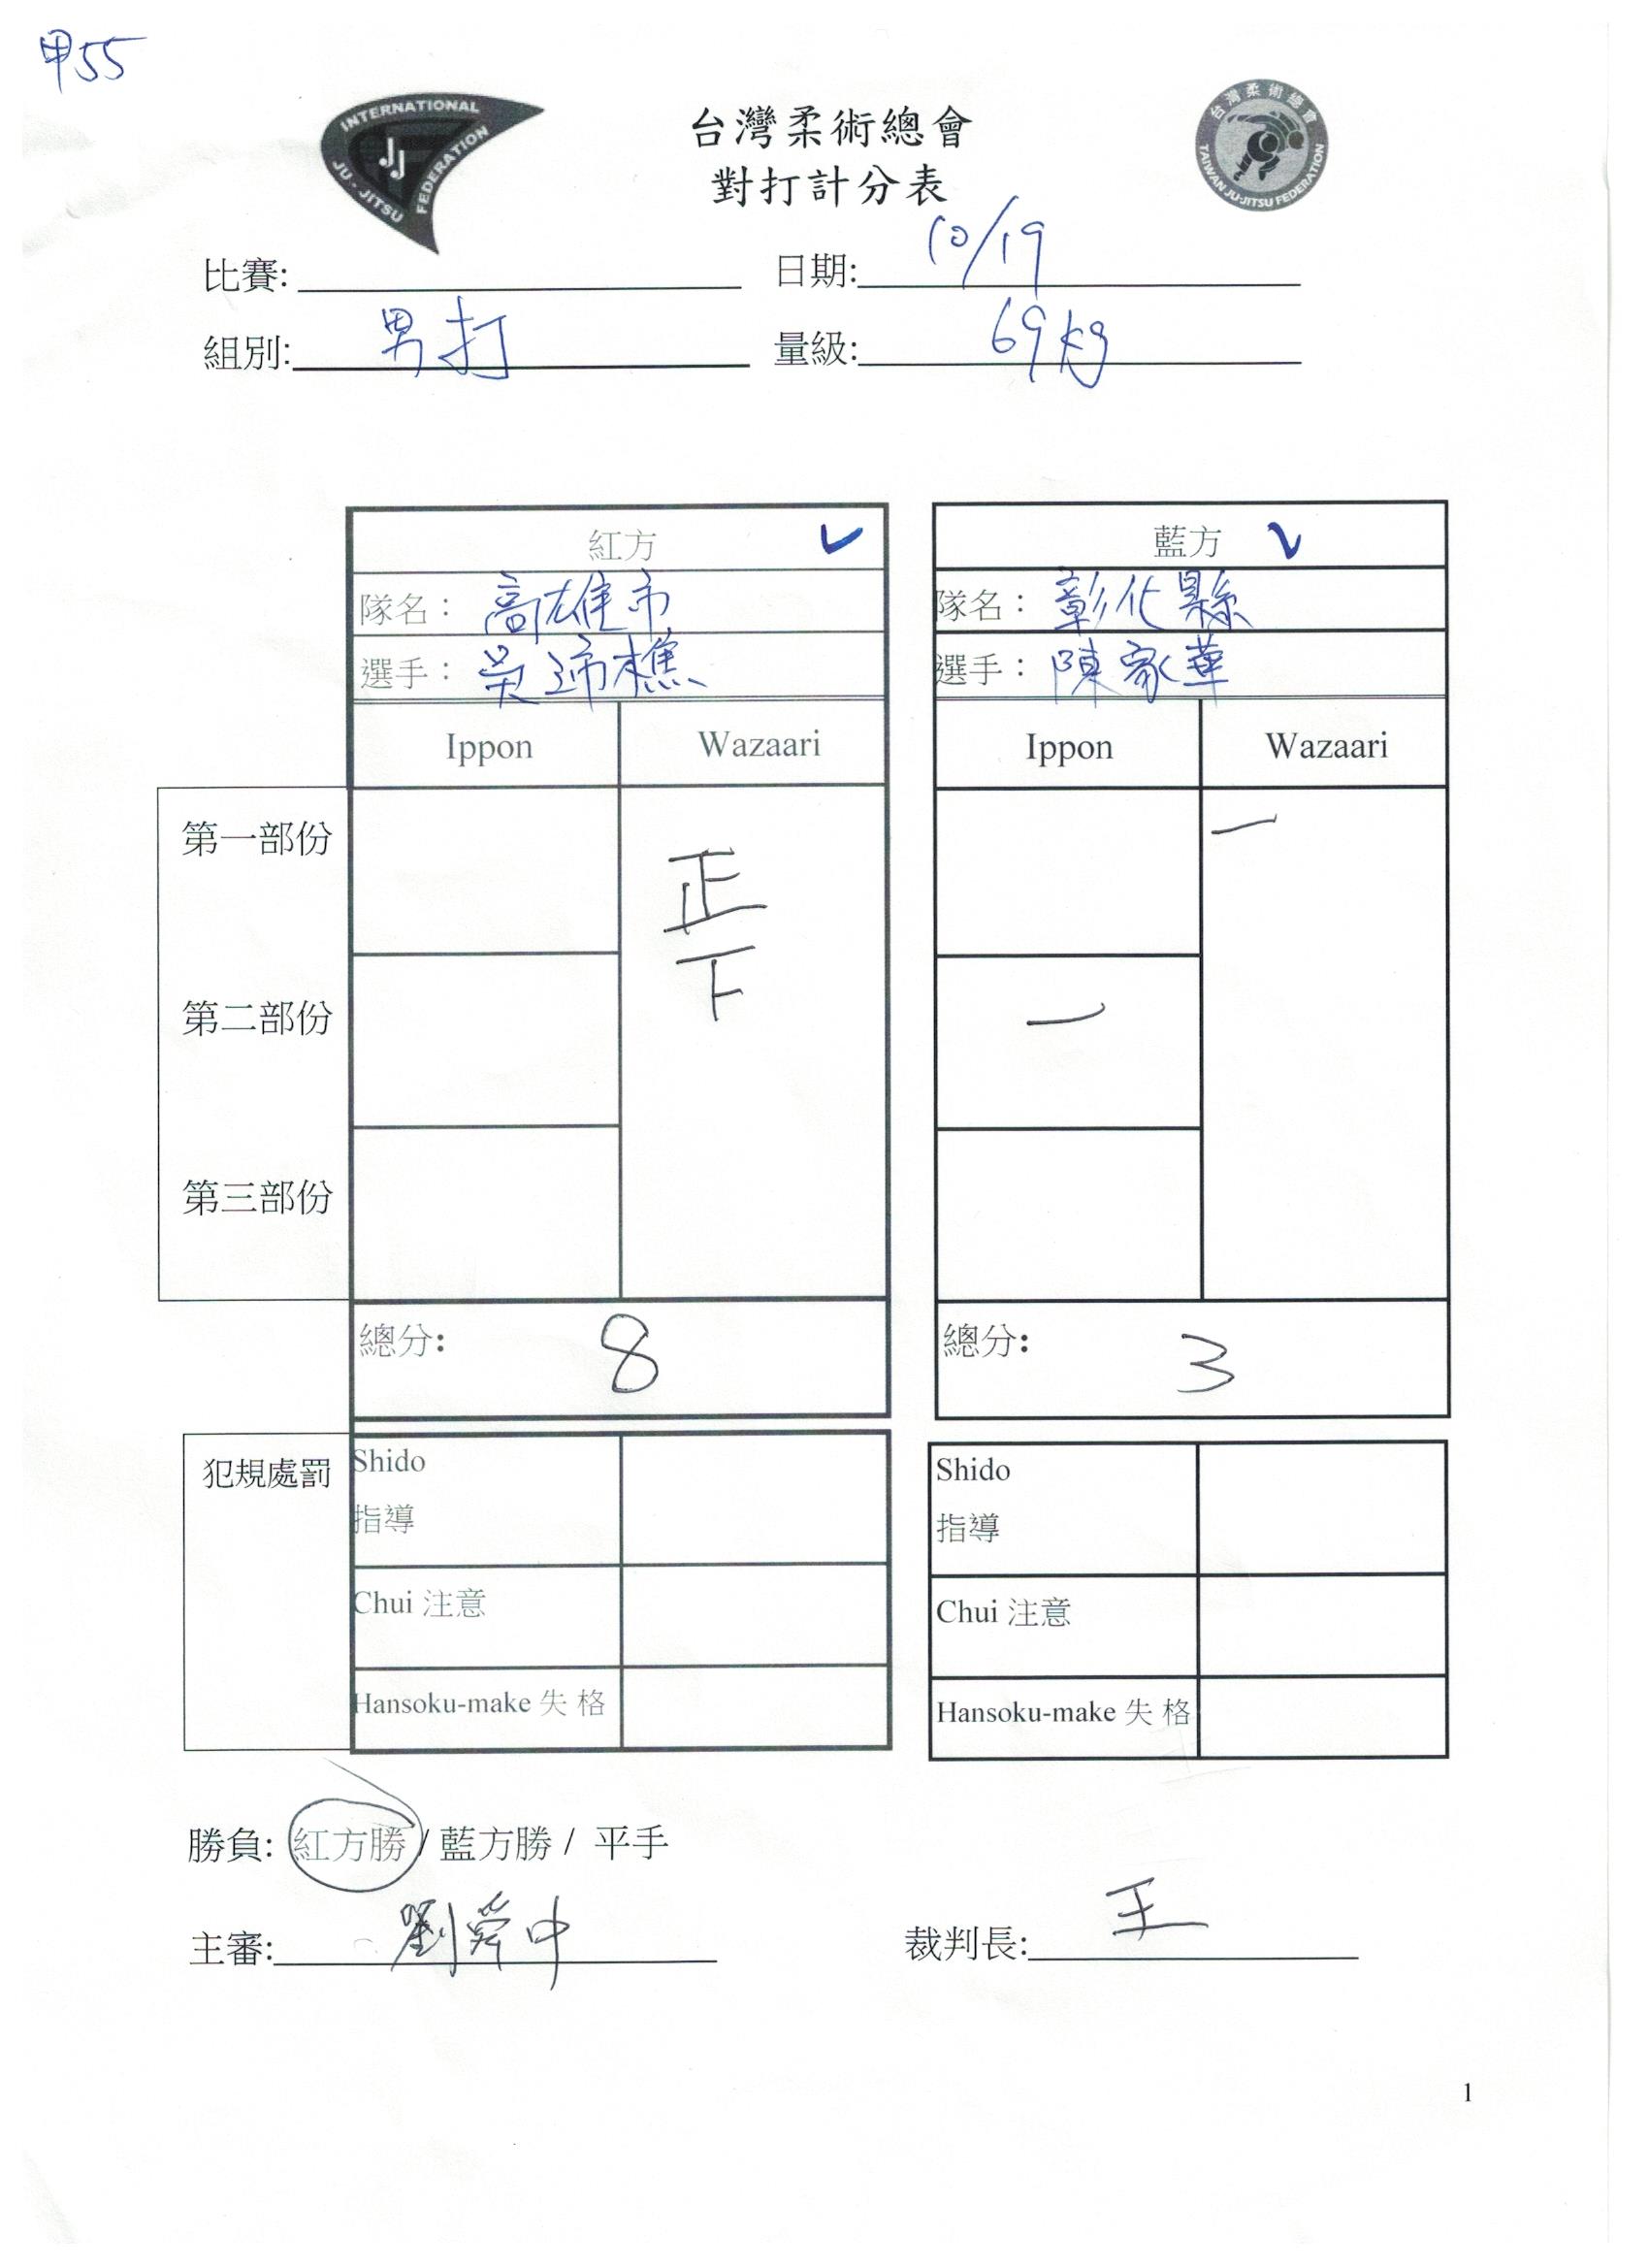 甲55
INTERNATIONAL JU-JITSU FEDERATION
JJ
台灣柔術總會
TAIWAN JU-JITSU FEDERATION
台灣柔術總會
對打計分表
比賽: 日期: 10/19
組別: 男打 量級: 69kg
紅方 ✓ 藍方 ✓
隊名： 高雄市 隊名： 彰化縣
選手： 吳 樵 選手： 陳家華
Ippon Wazaari Ippon Wazaari
第一部份 正 一
第二部份 下 一
第三部份
總分: 8 總分: 3
犯規處罰 Shido Shido
指導 指導
Chui 注意 Chui 注意
Hansoku-make 失 格 Hansoku-make 失 格
勝負: 紅方勝 / 藍方勝 / 平手
主審: 劉舜中 裁判長: 王
1